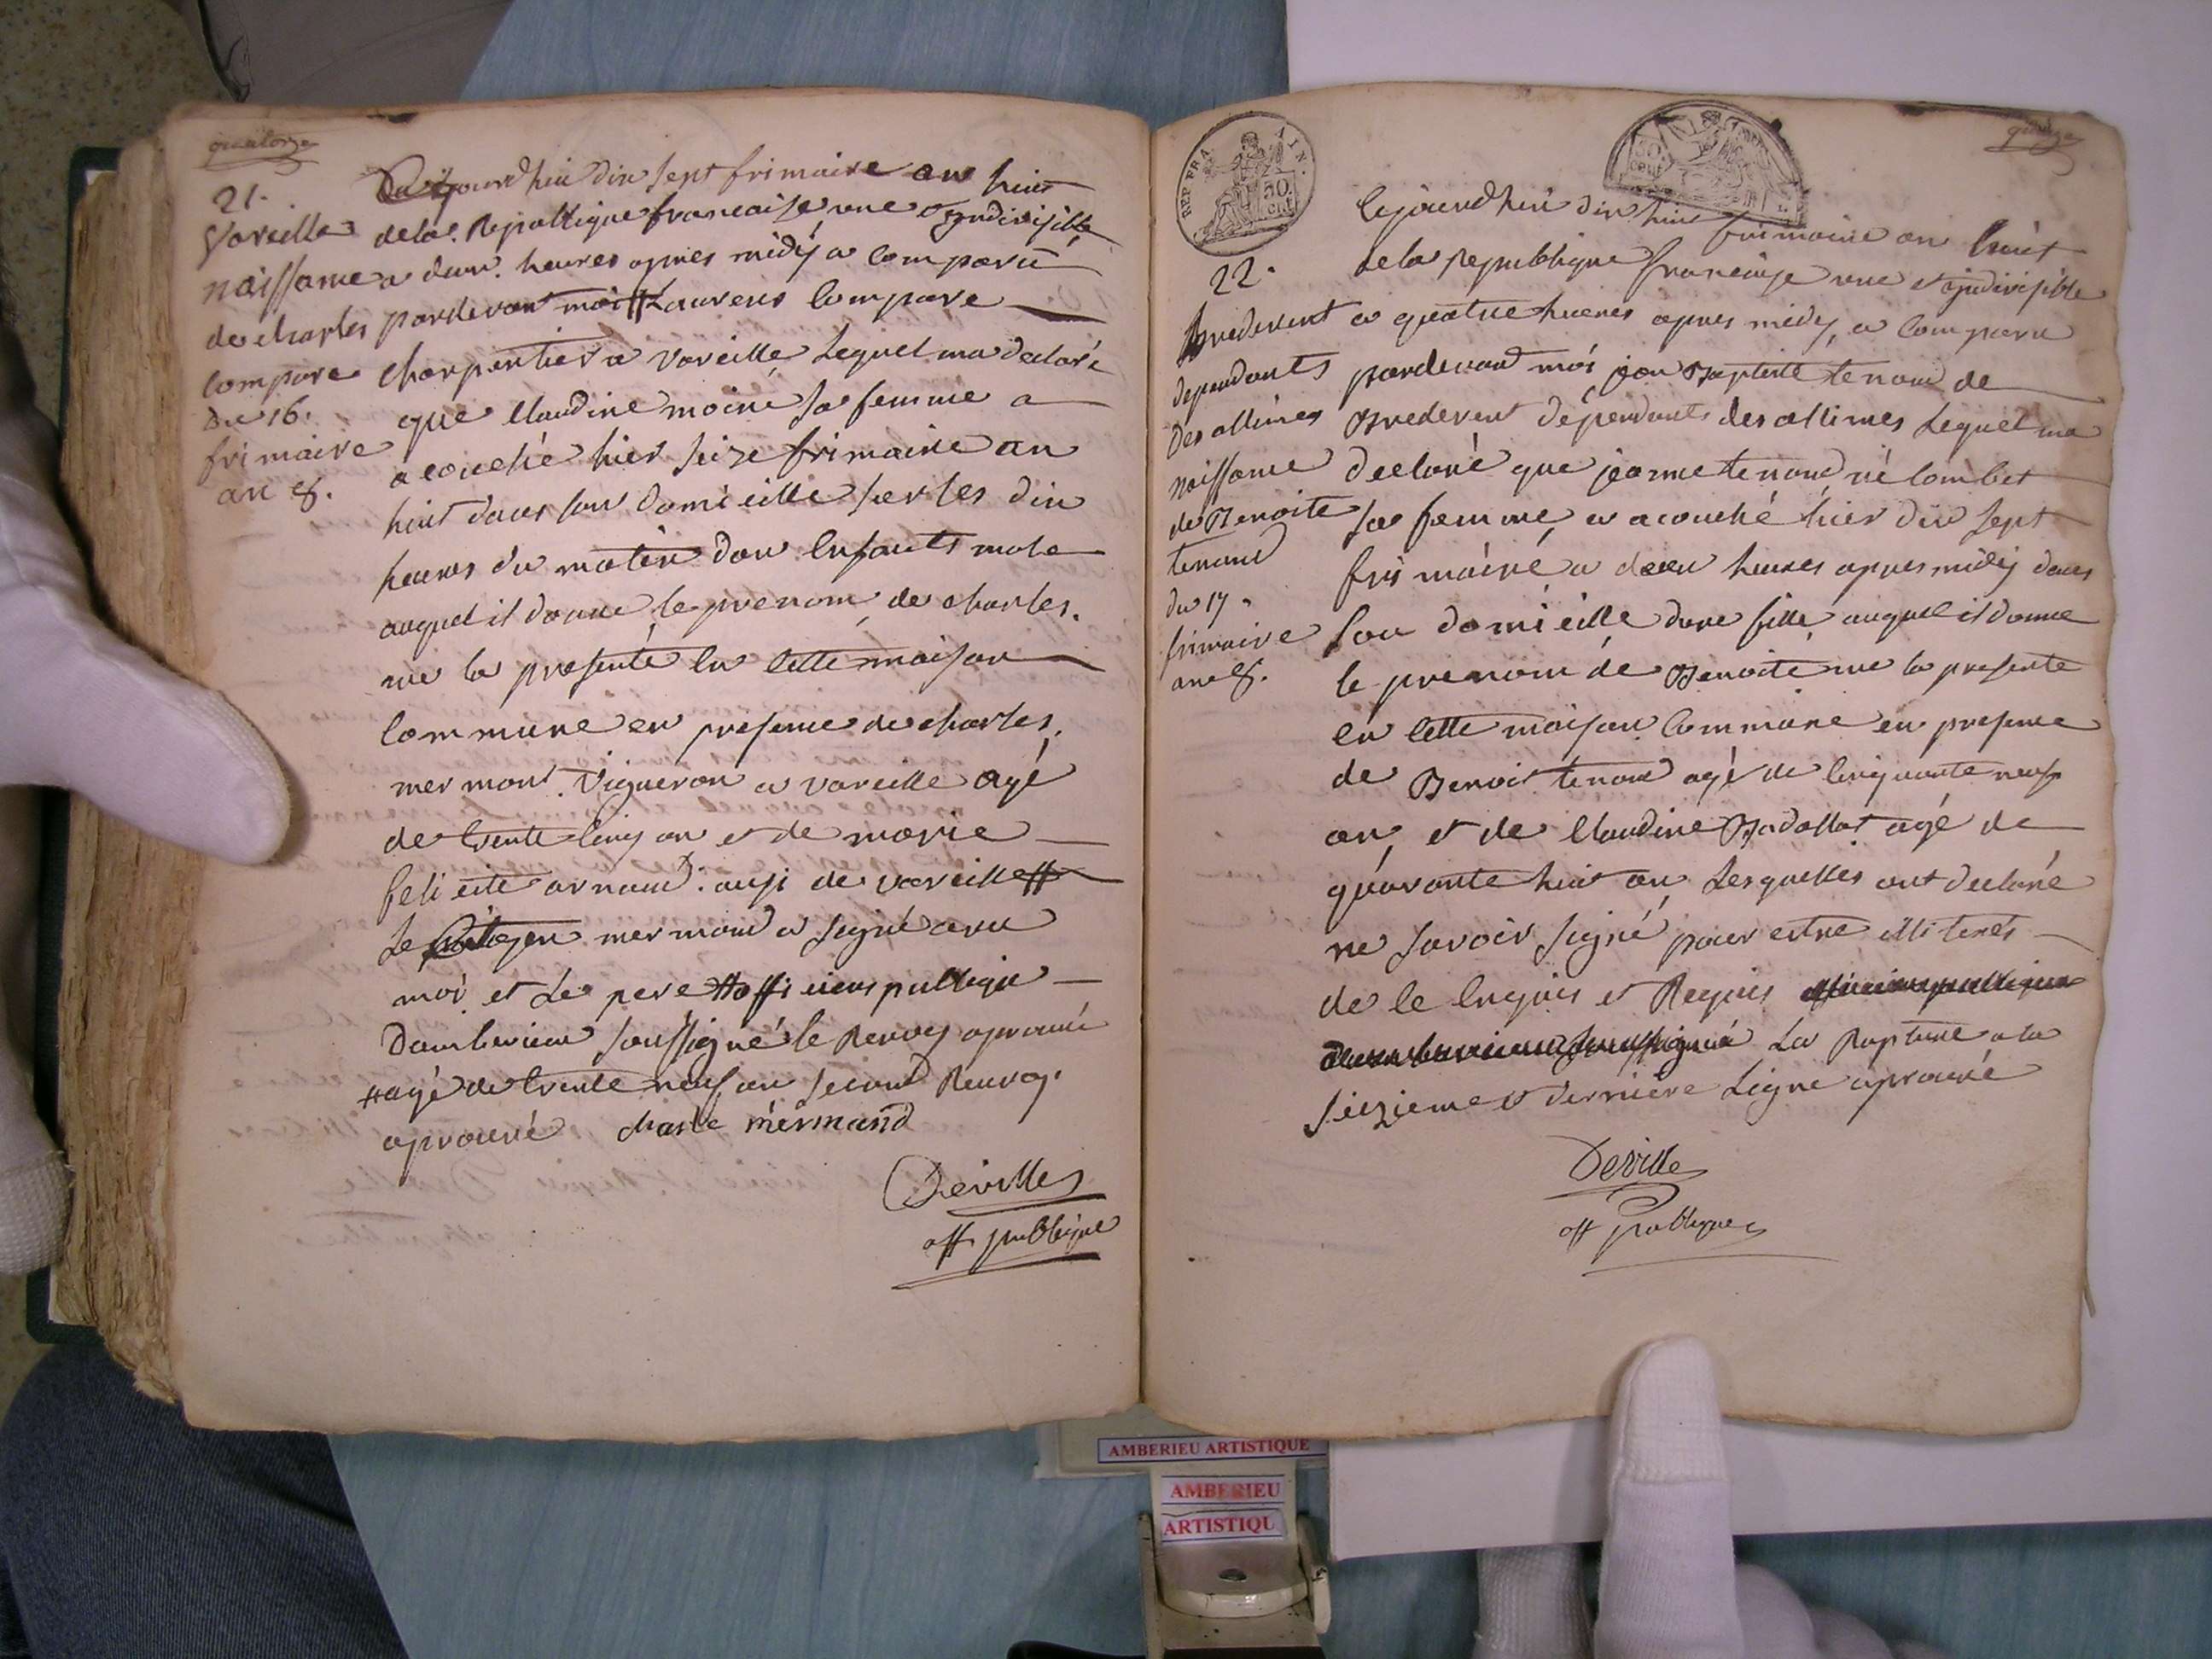 quatorze
21.
Vareilles
naissance
de charles
Compare
Du 16.
frimaire
an 8.
jourdhui dix sept frimaire an huit
de la Republique francaise une & indivisible
a deux heures apres midy a Comparu
pardevant moi # Laurens Compare
charpentier a Vareille, Lequel ma declaré
que Claudine moine sa femme a
acouché hier seize frimaire an
huit dans son domicille sur les dix
heures du matin dun Enfants male
auquel il donne le prenom de charles.
me la presenté En Cette maison
Commune en presence de charles
mermont. Vigneron a Vareille agé
de trente Cinq an et de marie
felicité arnaud. ausi de vareille #
Le Citoyen mermand a signé avec
moi et Le pere # officiers publique
Dambérieux soussigné le Renvoy aprouvé
# agé de trente neuf an second Renvoy
aprouvé charle mermand
Deville
off publique
quinze
REP. FRA.
50
cent
22.
Bredevent
dependants
Des allimes
naissance
de Benoite
tenand
du 17
frimaire
an 8.
Cejourdhui dix huit frimaire an huit
de la Republique francaise une et indivisible
a quatre heures apres midy, a Comparu
pardevant moi jan Baptiste tenand de
Bredevent dépendants des allimes Lequel ma
declaré que jeanne tenand né Combet
sa femme, a acouché hier dix sept
frimaire a deux heures apres midy dans
son domicille dune fille auquel il donne
le prenom de Benoite me la presente
en Cette maison Commune en presence
de Benoit tenand agé de Cinquante neuf
an et de Claudine Badollat agé de
quarante huit an Lesquelles ont declaré
ne savoir signé pour estre illiterés
de le Enquis et Requis officiers publique
Damberieux soussigné La Rupture a la
seizieme et derniere Ligne aprouvé
Deville
off publique
AMBERIEU ARTISTIQUE
AMBERIEU
ARTISTIQU